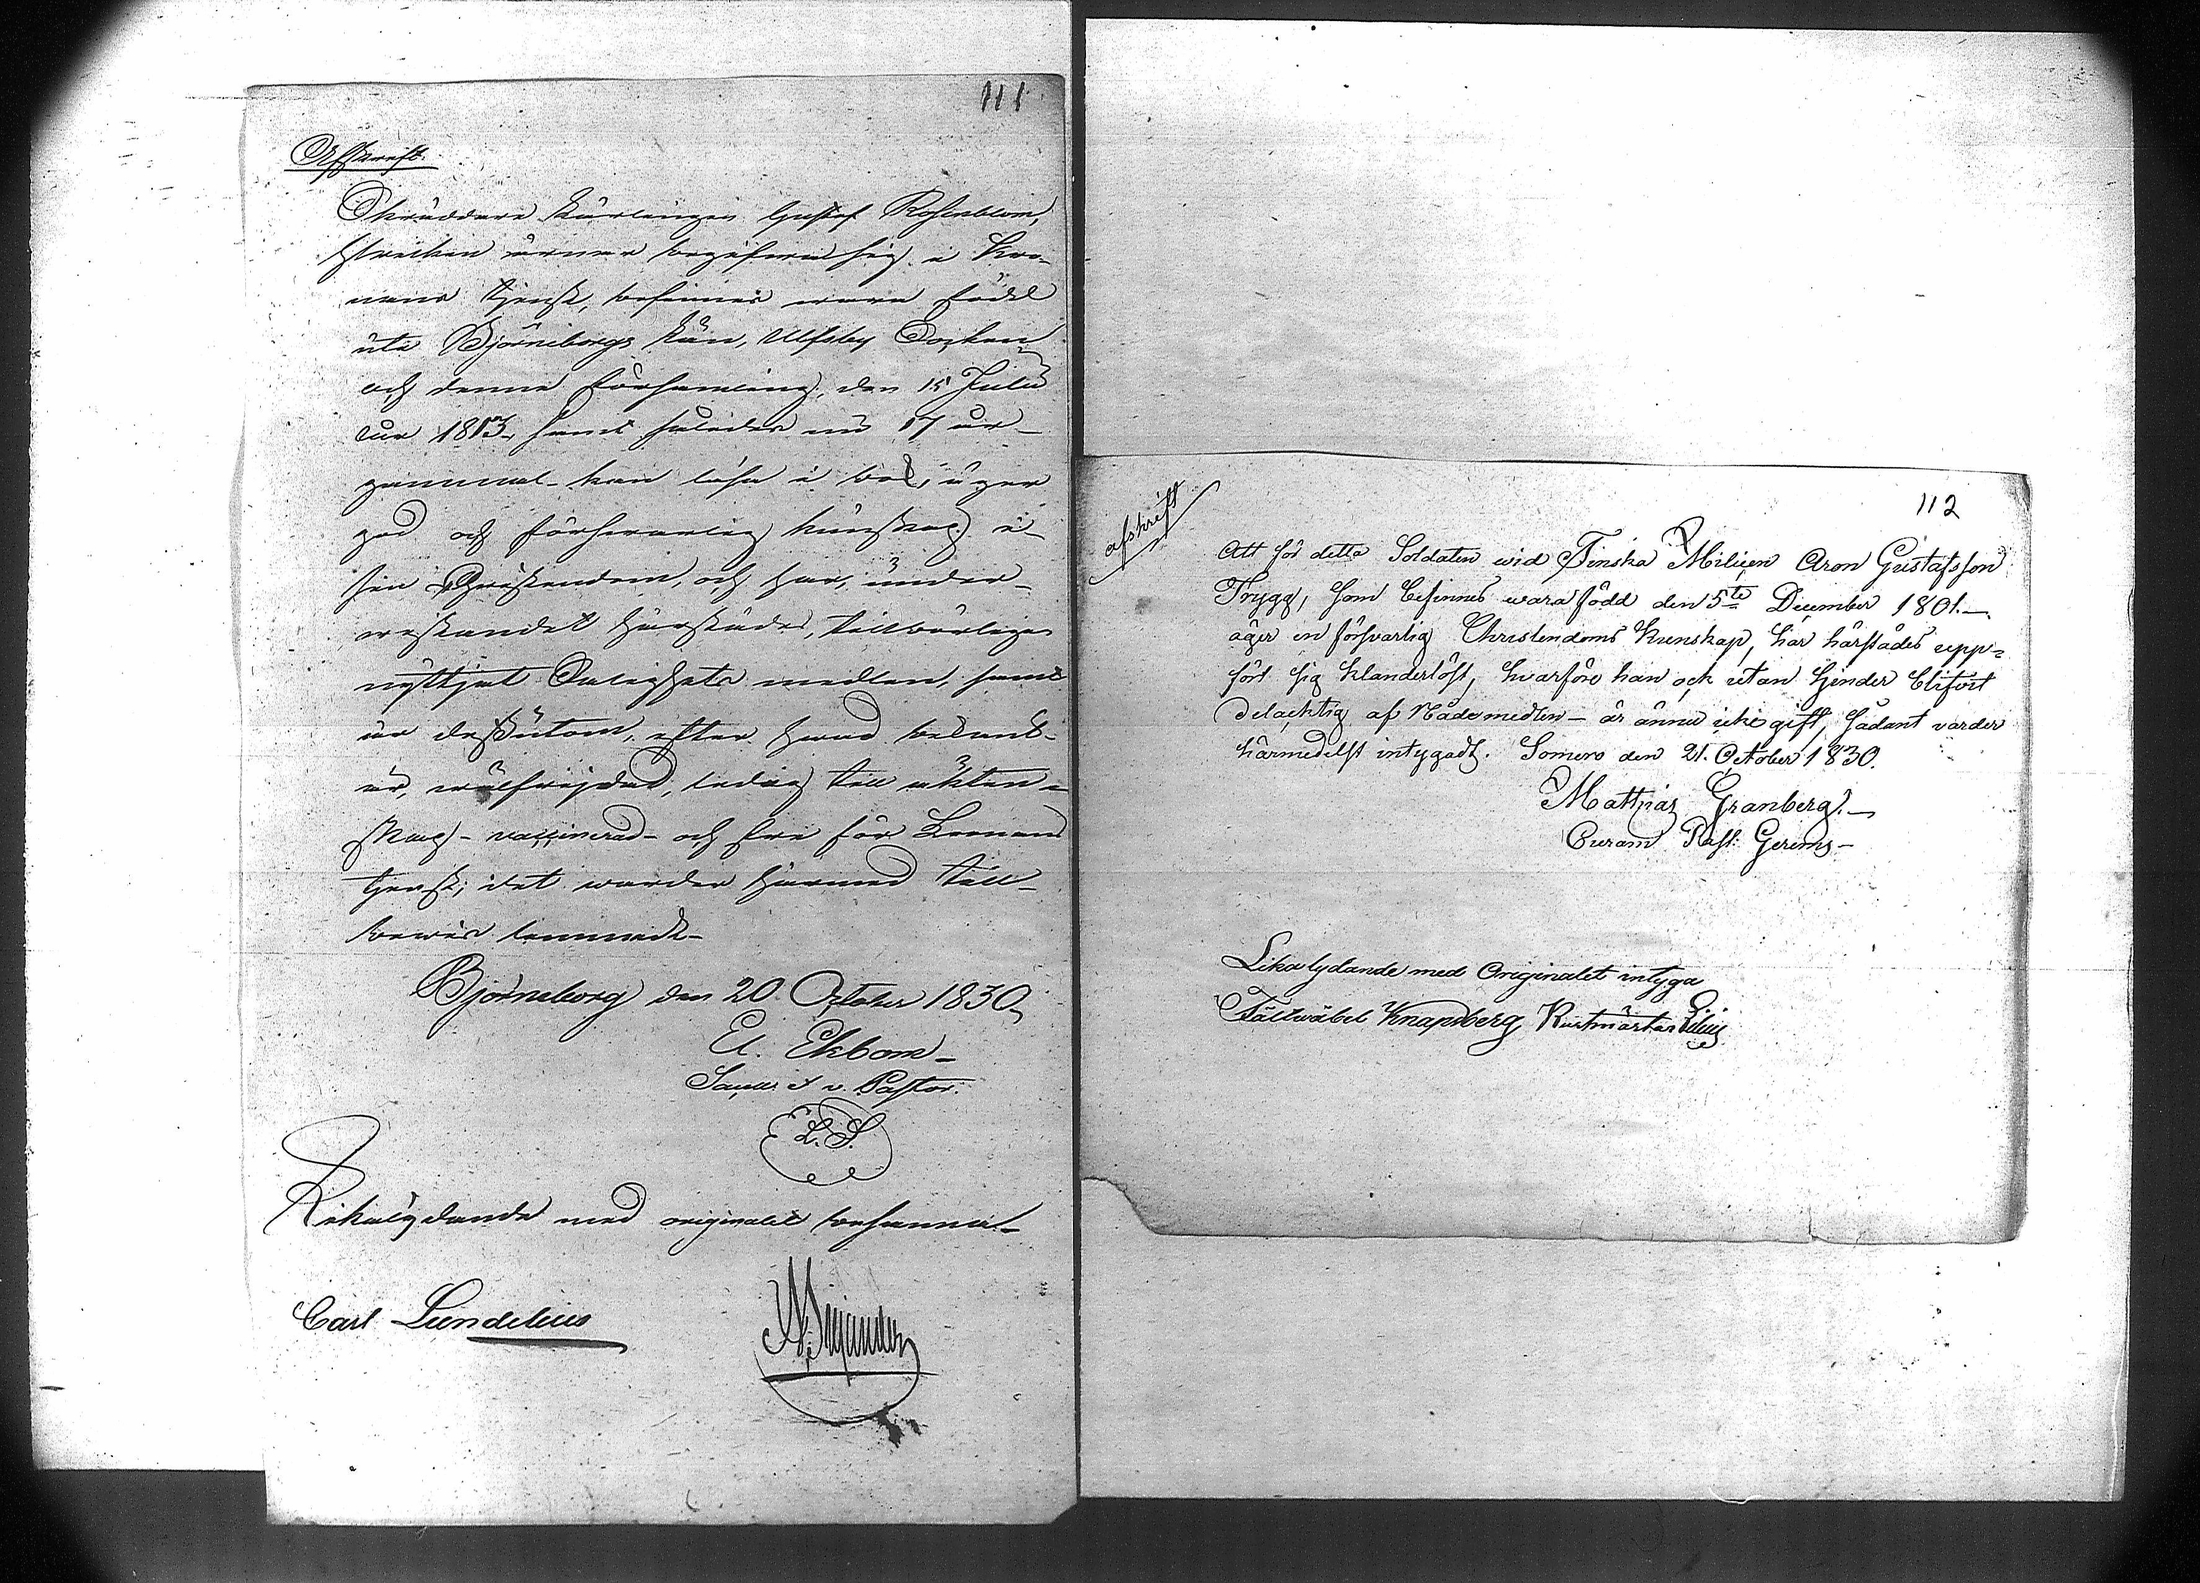 111
Afskrift.
Skräddare Lärlingen Gustaf Rosenblom,
hvilken ärnar begifva sig i Kro-
nans tjenst, befinnes vara född
uti Björneborgs Län, Ulfsby Socken
och denna församling, den 15 Julii
år 1813, samt således nu 17 år
gammal - kan läsa i bok, äger
god och försvarlig kunskap i
sin Christendom, och har, under
vistandet härstädes, tillbörligen
nyttjat Salighets medlen, samt
är dessutom, efter hvad bekant
är, wälfrejdad, ledig till äkten-
skap - vaccinerad - och fri för Kronans
tjenst; det warder härmed till
bewis lemnadt -
Björneborg den 20 October 1830,
El. Ekbom -
Sacell. et v. Pastor.
L.S.
Likalydande med originalet besannat -
Carl Lundelius
112
afskrift
Att för detta Soldaten wid Finska Milicen Aron Gustafsson
Trygg, som befinnes wara född den 5te December 1801. -
äger en försvarlig Christendoms Kunskap, har härstädes upp=
fört sig klanderlöst, hwarföre han ock utan hinder blifvit
delacktig af Nådemedlen - är ännu icke gift, sådant varder
härmedelst intygadt. Somero den 21. October 1830.
Matthias Granberg. -
Curam Past: Gerens -
Lika lydande med Originalet intyga
Fältwäbel Knapsberg Rustmästar